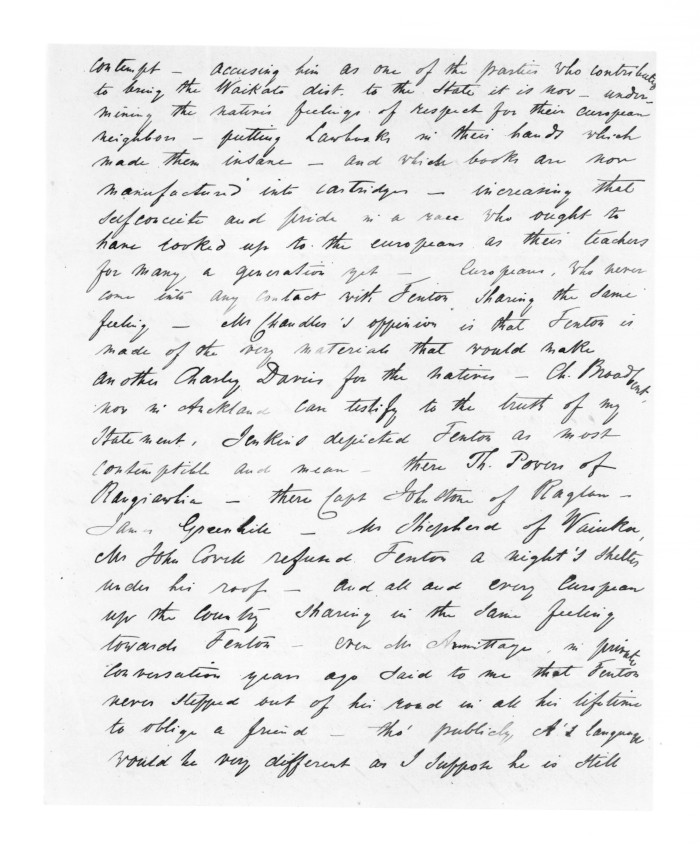 contempt – accusing him as one of the parties who contributed
to bring the Waikato dist. to the State it is now – under-
mining the native's feelings of respect for their european
neighbors – putting Lawbooks in their hands which
made them insane – and which books are now
manufactured into cartridges – increasing that
selfconceite and pride in a race who ought to
have looked up to the europeans as their teachers
for many a generation yet – Europeans, who never
come into any contact with Fenton sharing the same
feeling – Mr Chandler's oppinion is that Fenton is
made of the very materials that would make
another Charley Davies for the natives – Ch. Broadbent,
now in Auckland can testify to the truth of my
Statement. Jenkins depicted Fenton as most
contemptible and mean – there Th. Povers of
Rangiawhia – there Capt Johnstone of Raglan –
James Greenhill – Mr Shepherd of Waiuku,
Mr John Covell refused Fenton a night's shelter
under his roof – and all and every European
up the Country sharing in the same feeling
towards Fenton – even Mr Armittage, in private
Conversation years ago said to me that Fenton
never stepped out of his road in all his lifetime
to oblige a friend – tho' publicly A's language
would be very different as I suppose he is still